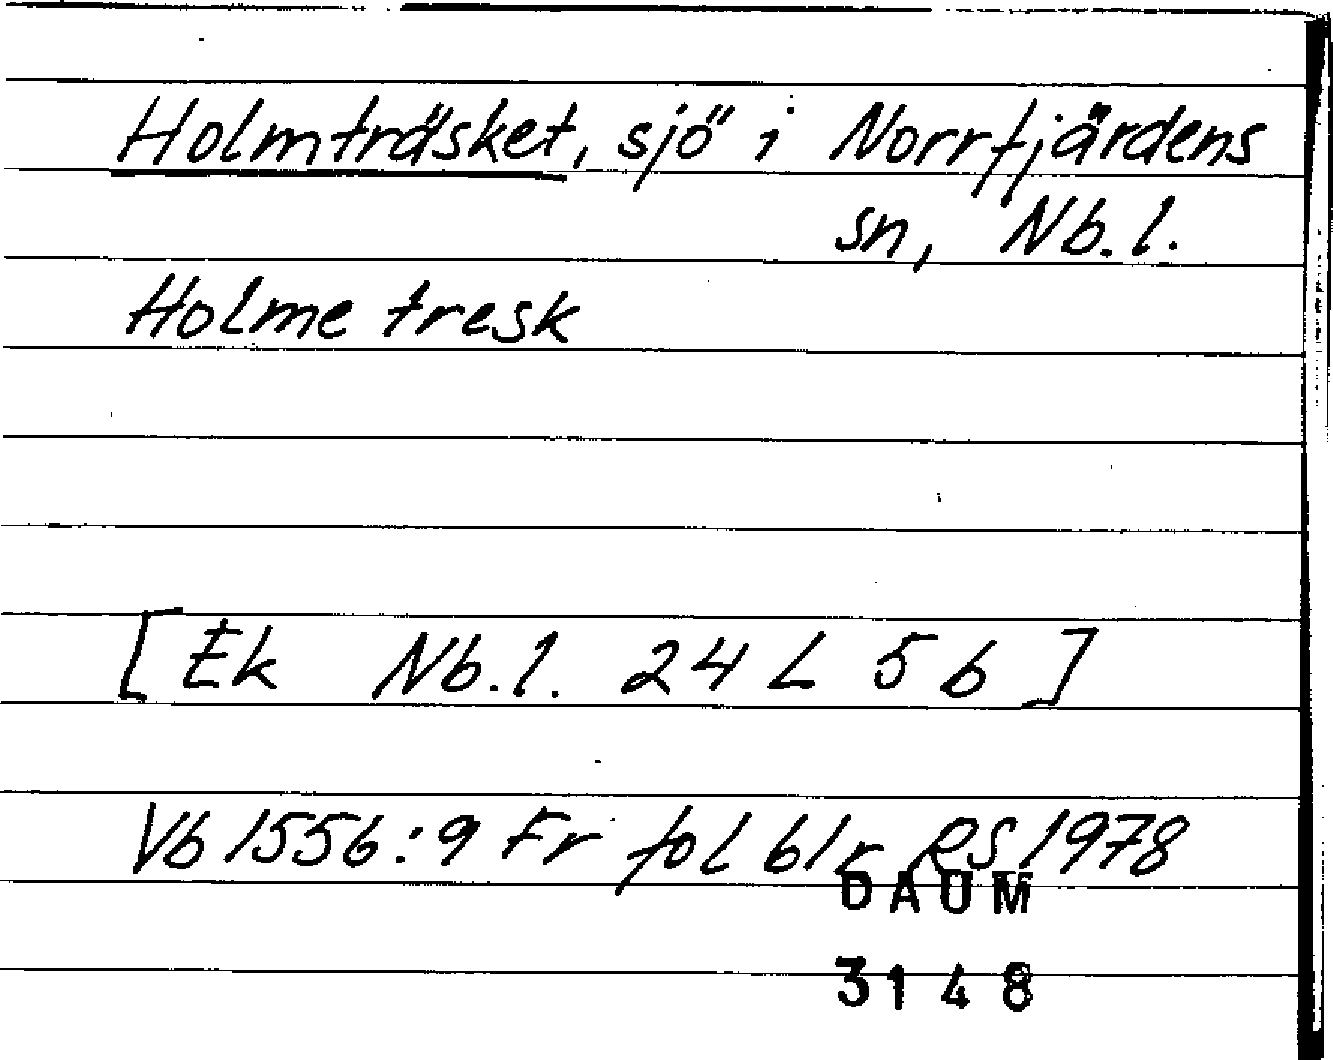 Holmträsket, sjö i Norrfjärdens
sn, Nb.l.
Holme tresk
[Ek Nb.l. 24 L 5 b]
Vb 1556:9 Fr fol 61r RS 1978
DAUM
3148